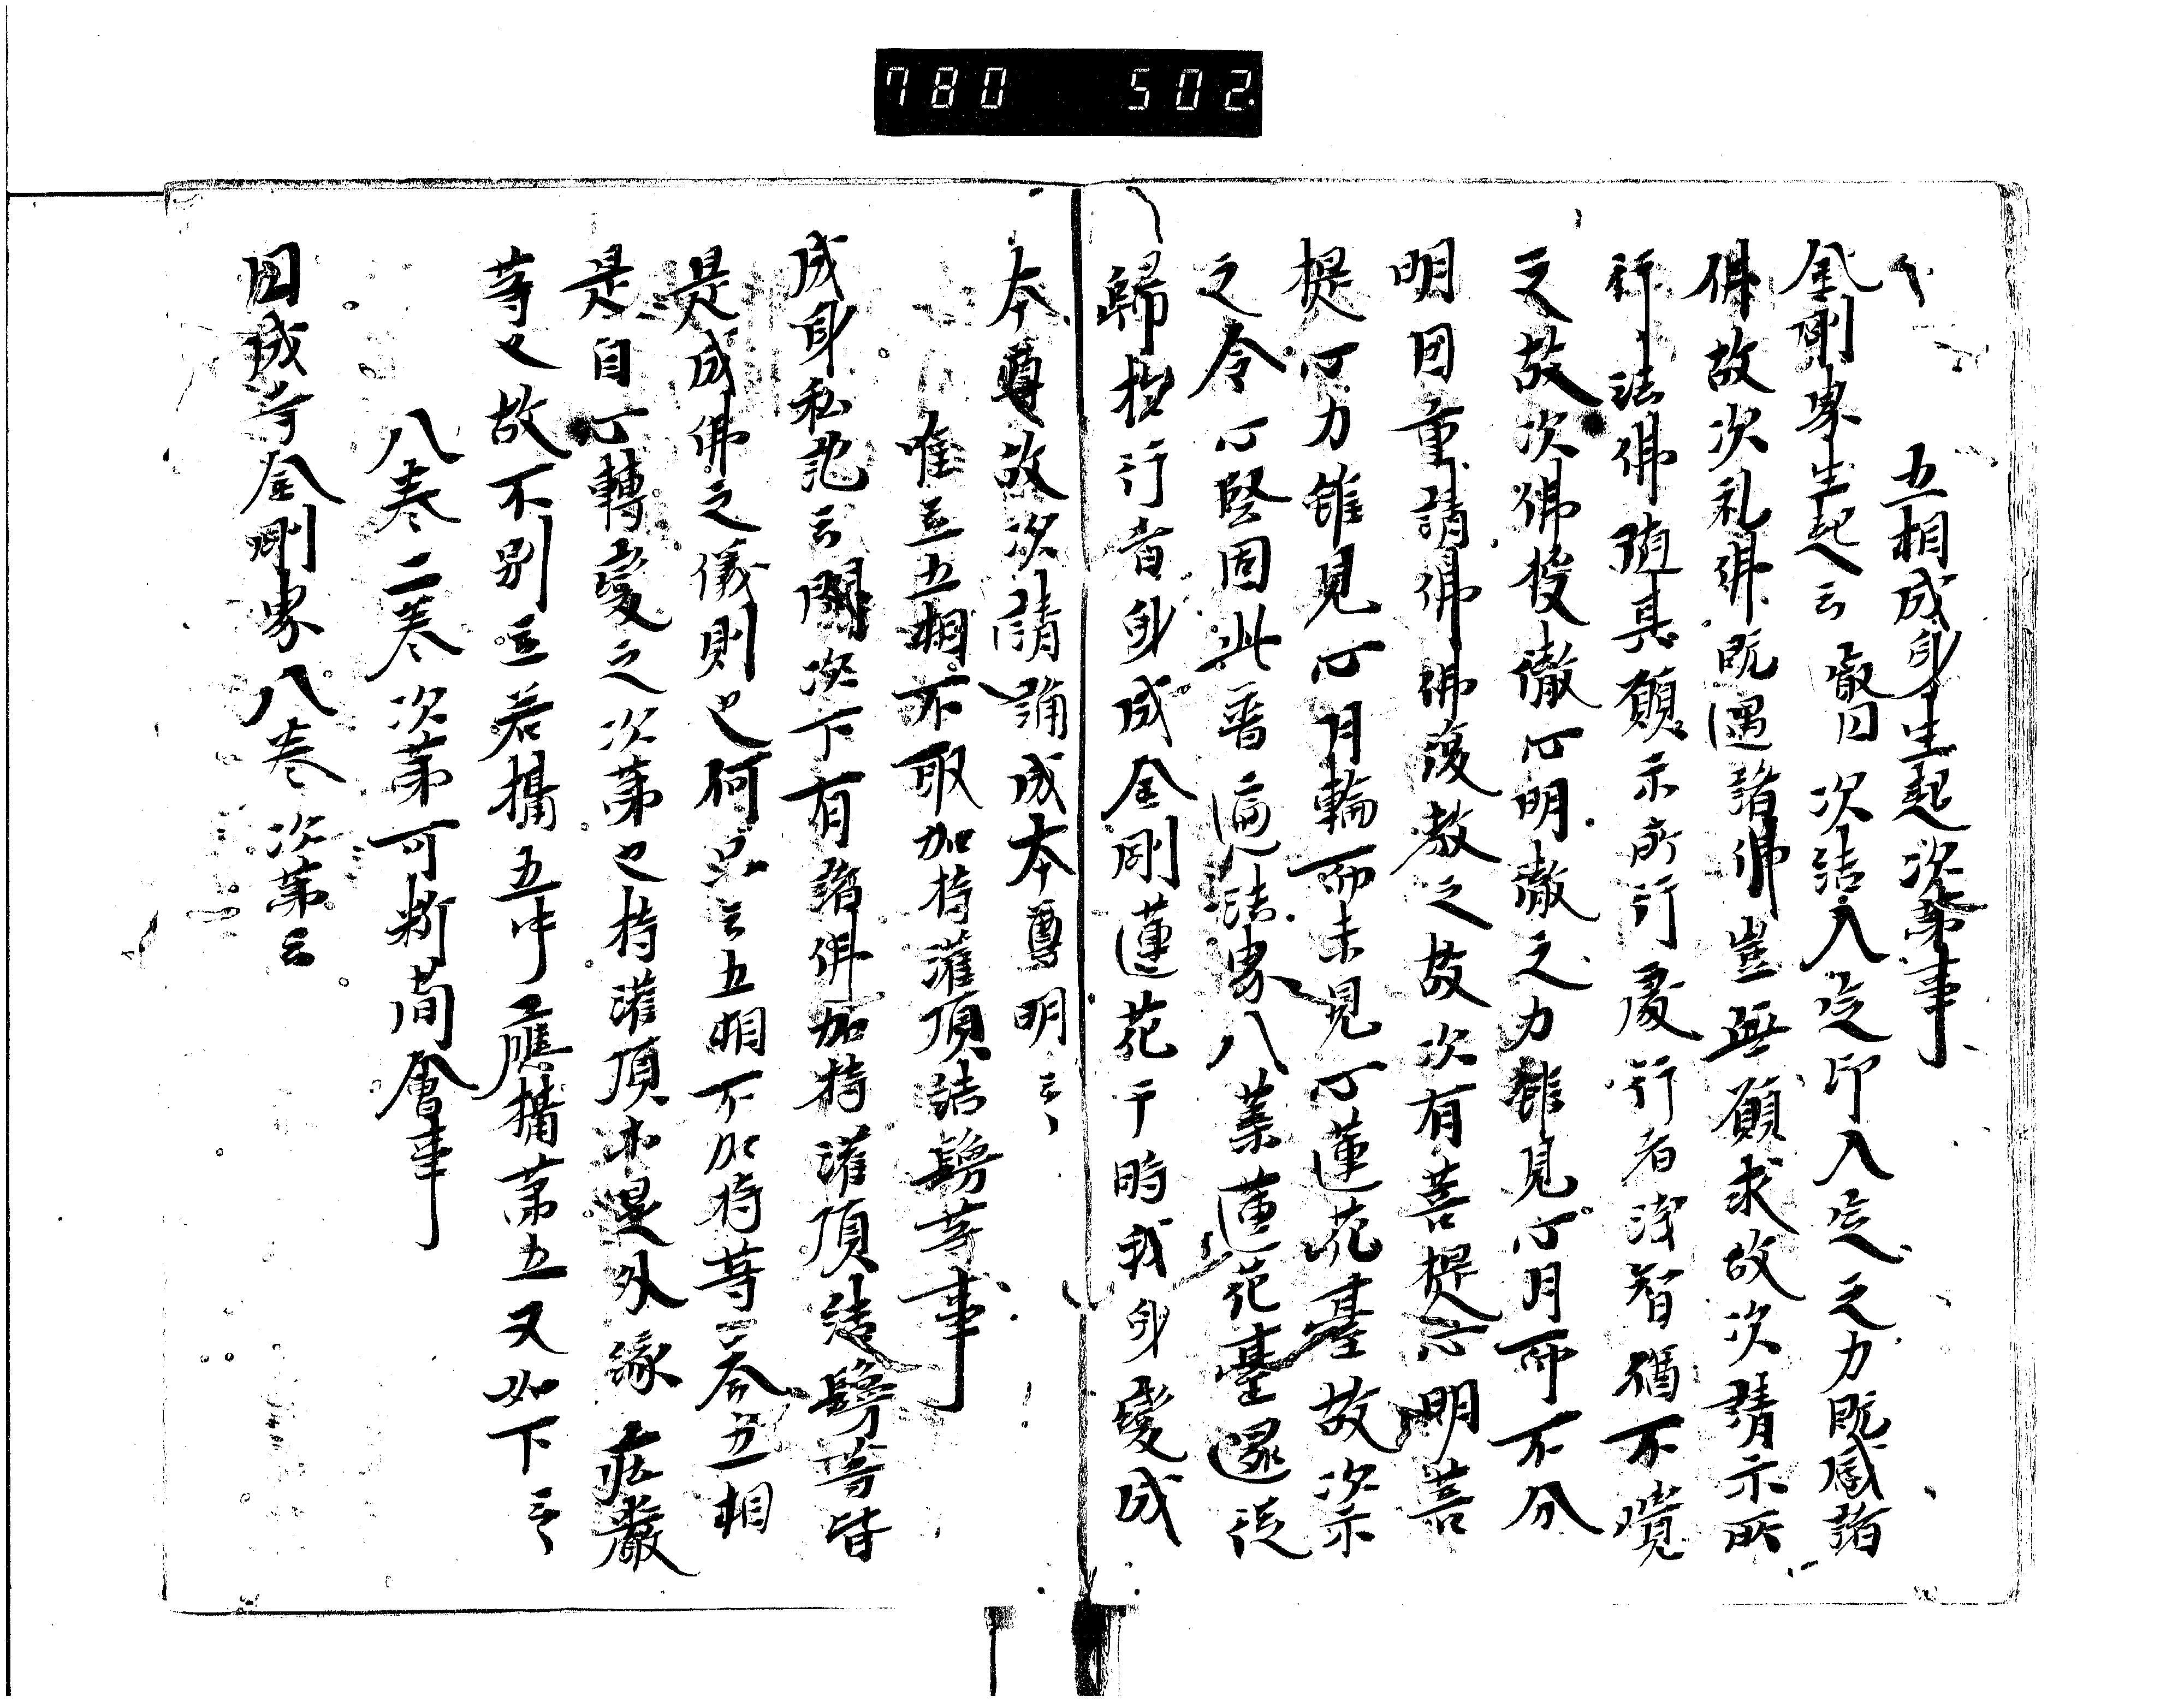 780 502
五相成身生起次第事
金剛界生起云 叡曰 次結入定印入定之力既感諸
佛故次礼佛既遇諸佛豈無願求故次請示所
行法佛随其願示所行處行者浅智猶不覚
之故次佛授徹心明徹之力雖見心月而不分
明因重請佛佛復教之故次有菩提心明菩
提心力雖見心月輪而未見心蓮花臺故次示
之令心堅固此普遍法界八葉蓮花臺還従
歸於行者身成金剛蓮花于時我身變成
本尊故次請誦成本尊明云々
唯立五相不取加持灌頂結鬘等事
成身私記云問次下有諸佛加持灌頂結鬘等皆
是成佛之儀則也何只云五相不加持等答五相
是自心轉變之次第也持灌頂亦是外縁荘嚴
等也故不別立若攝五中應攝第五又如下云々
八巻二巻次第可料簡會事
因成寺金剛界八巻次第云